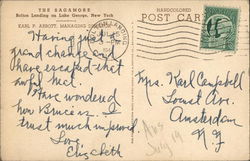 THE SAGAMORE
Bolton Landing on Lake George, New York
KARL P. ABBOTT, MANAGING
HANDCOLORED
POST CARD
Having just a
grand change and
have escaped that
awful heat.
Have wondered
how Bruce is. I
trust much improved.
Love,
Elizabeth
Mrs. Karl Campbell
Locust Ave.
Amsterdam
N.Y.